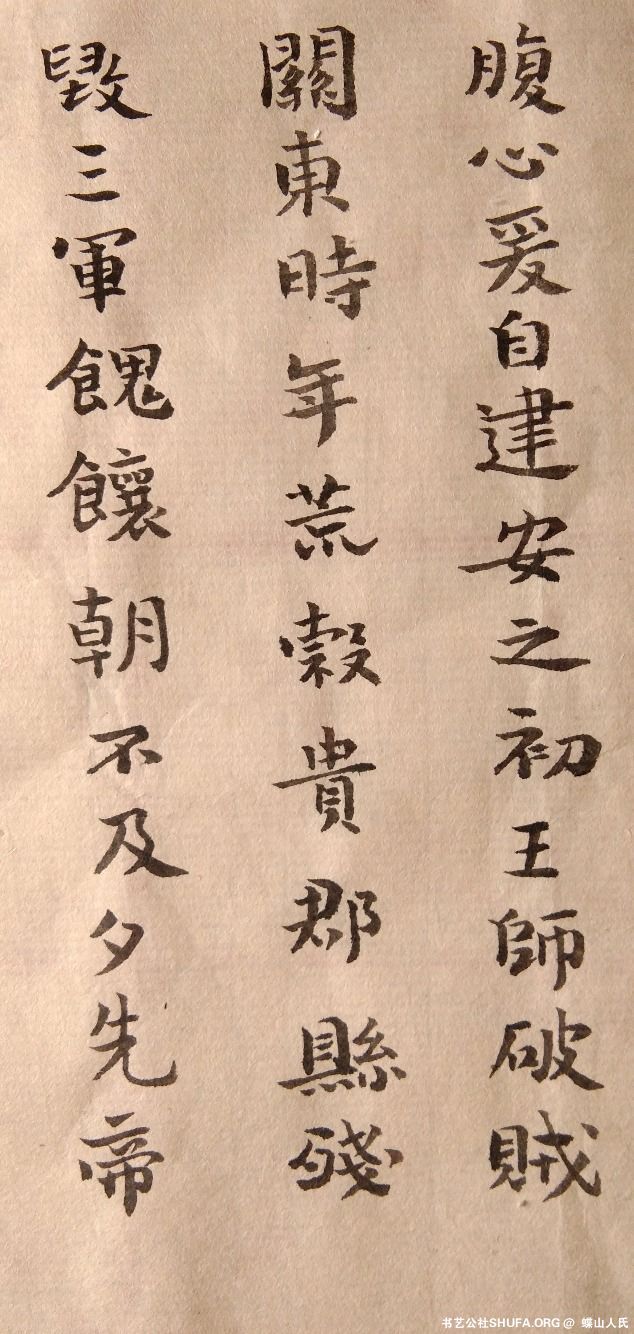 腹心爰自建安之初王師破賊
關東時年荒穀貴郡縣殘
毀三軍餽饟朝不及夕先帝
书艺公社SHUFA.ORG @ 蝶山人氏